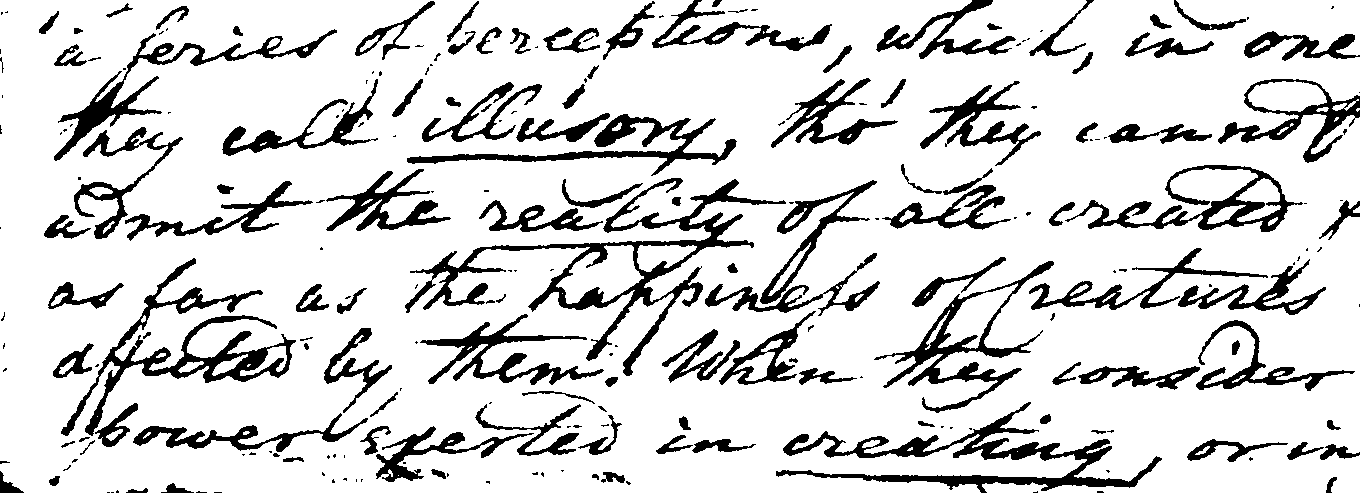 a series of perceptions, which, in one
they call illusory, tho' they cannot
admit the reality of all created &
as far as the happiness of Creatures
affected by them. When they consider
power exerted in creating, or in